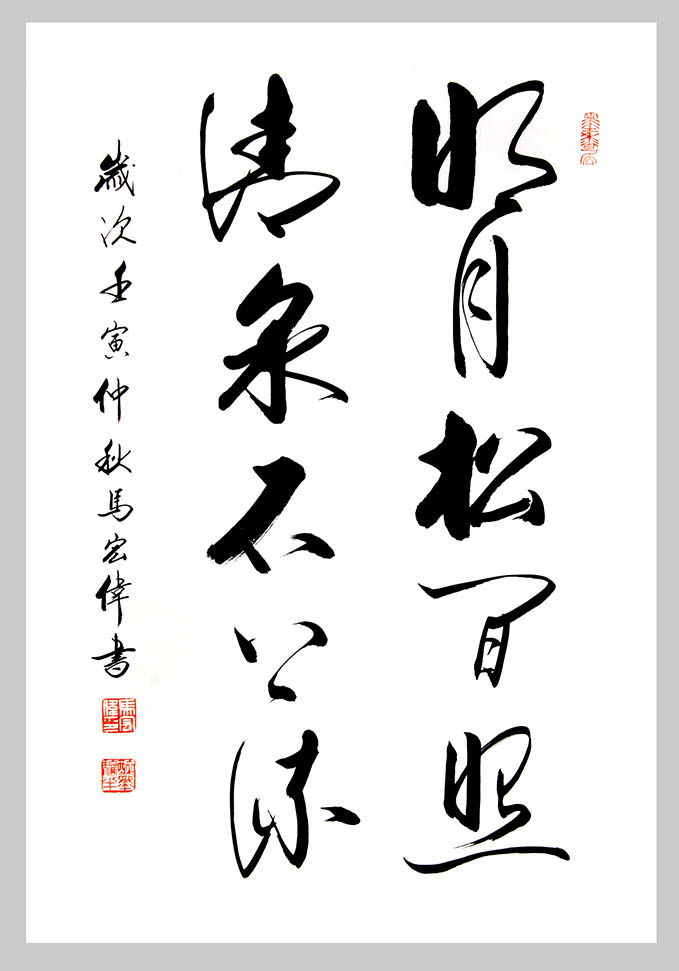 明月松間照
清泉石上流
歲次壬寅仲秋馬宏偉書
馬宏偉印